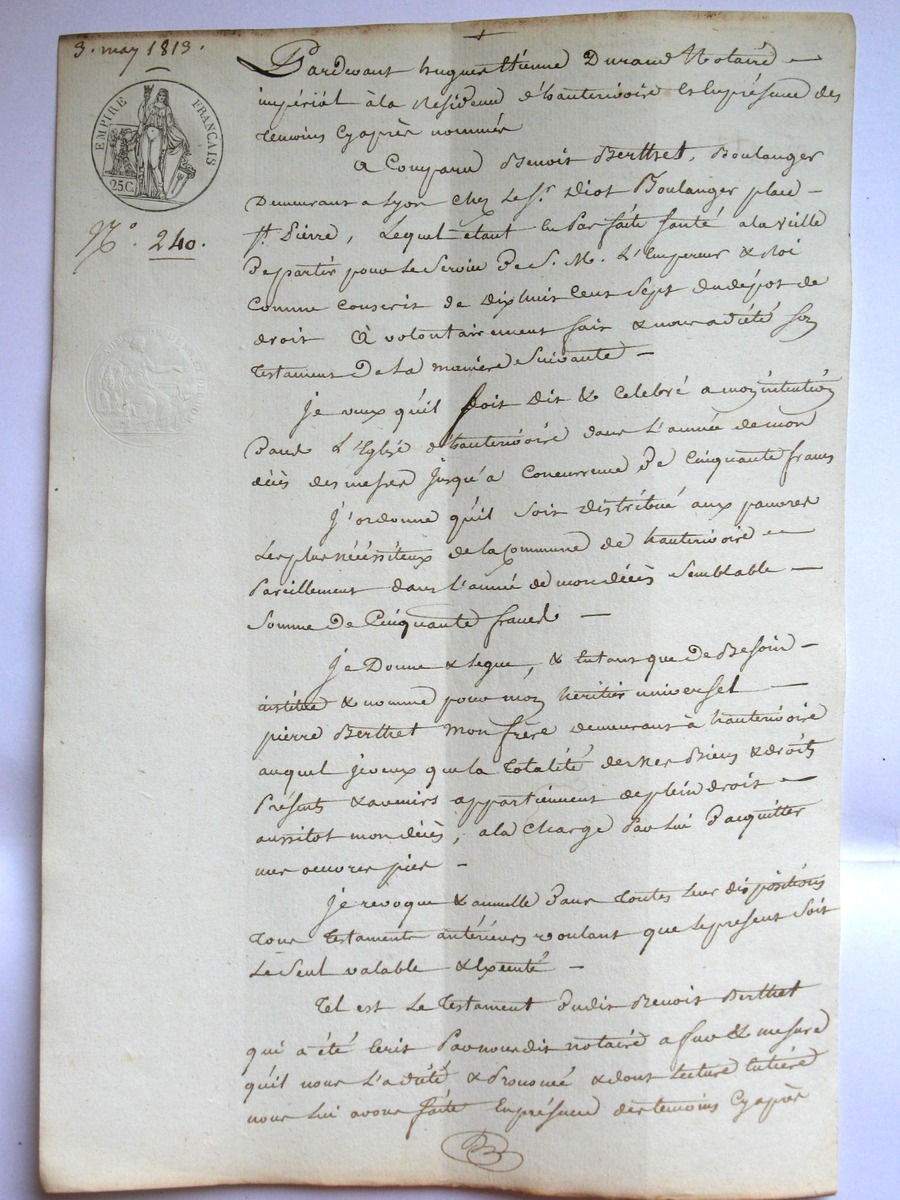 3. may 1813.
EMPIRE FRANÇAIS
25 C.
N.° 240.
Pardevant hugues Etienne Durand Notaire
impérial à la Résidence d'hauterivoire Et En présence des
témoins Cyaprès nommés
a Comparu Benoit Berthet, Boulanger
Demeurant a Lyon chez Le Sr. Diot Boulanger place
St. Pierre, Lequel étant En Parfaite santé a la veille
De partir pour Le Service De S. M. L'Empereur & Roi
Comme conscrit de Dix huit Cent Sept du dépot de
droit A volontairement fait & nous a dicté son
testament De La manière Suivante
Je veux qu'il soit Dit & Celebré a mon intention
Dans L'Eglise d'hauterivoire dans L'année de mon
décès des messes jusqu'a concurrence De Cinquante francs
J'ordonne qu'il soit distribué aux pauvres
Les plus nécéssiteux de la Commune de hauterivoire
Pareillement dans L'année de mon décès Semblable
Somme De Cinquante francs
Je Donne & Legue, & Entant que De Besoin
institue & nomme pour mon heritier universel
pierre Berthet mon frère demeurant à hauterivoire
auquel je veux que La totalité de mes Biens & droits
Présents & avenirs appartiennent de plein droit
aussitot mon décès, a la Charge Par Lui D'acquitter
mes oeuvres pies
Je revoque & annulle Dans toutes Leur dispositions
tous testaments antérieurs voulant que Le présent Soit
Le Seul valable & Executé
Tel est Le testament Dudit Benoit Berthet
qui a été Ecrit Par nousdit notaire a fur & mesure
qu'il nous L'a dicté & Prononcé & dont Lecture Entière
nous Lui avons faite En présence des temoins Cyaprès